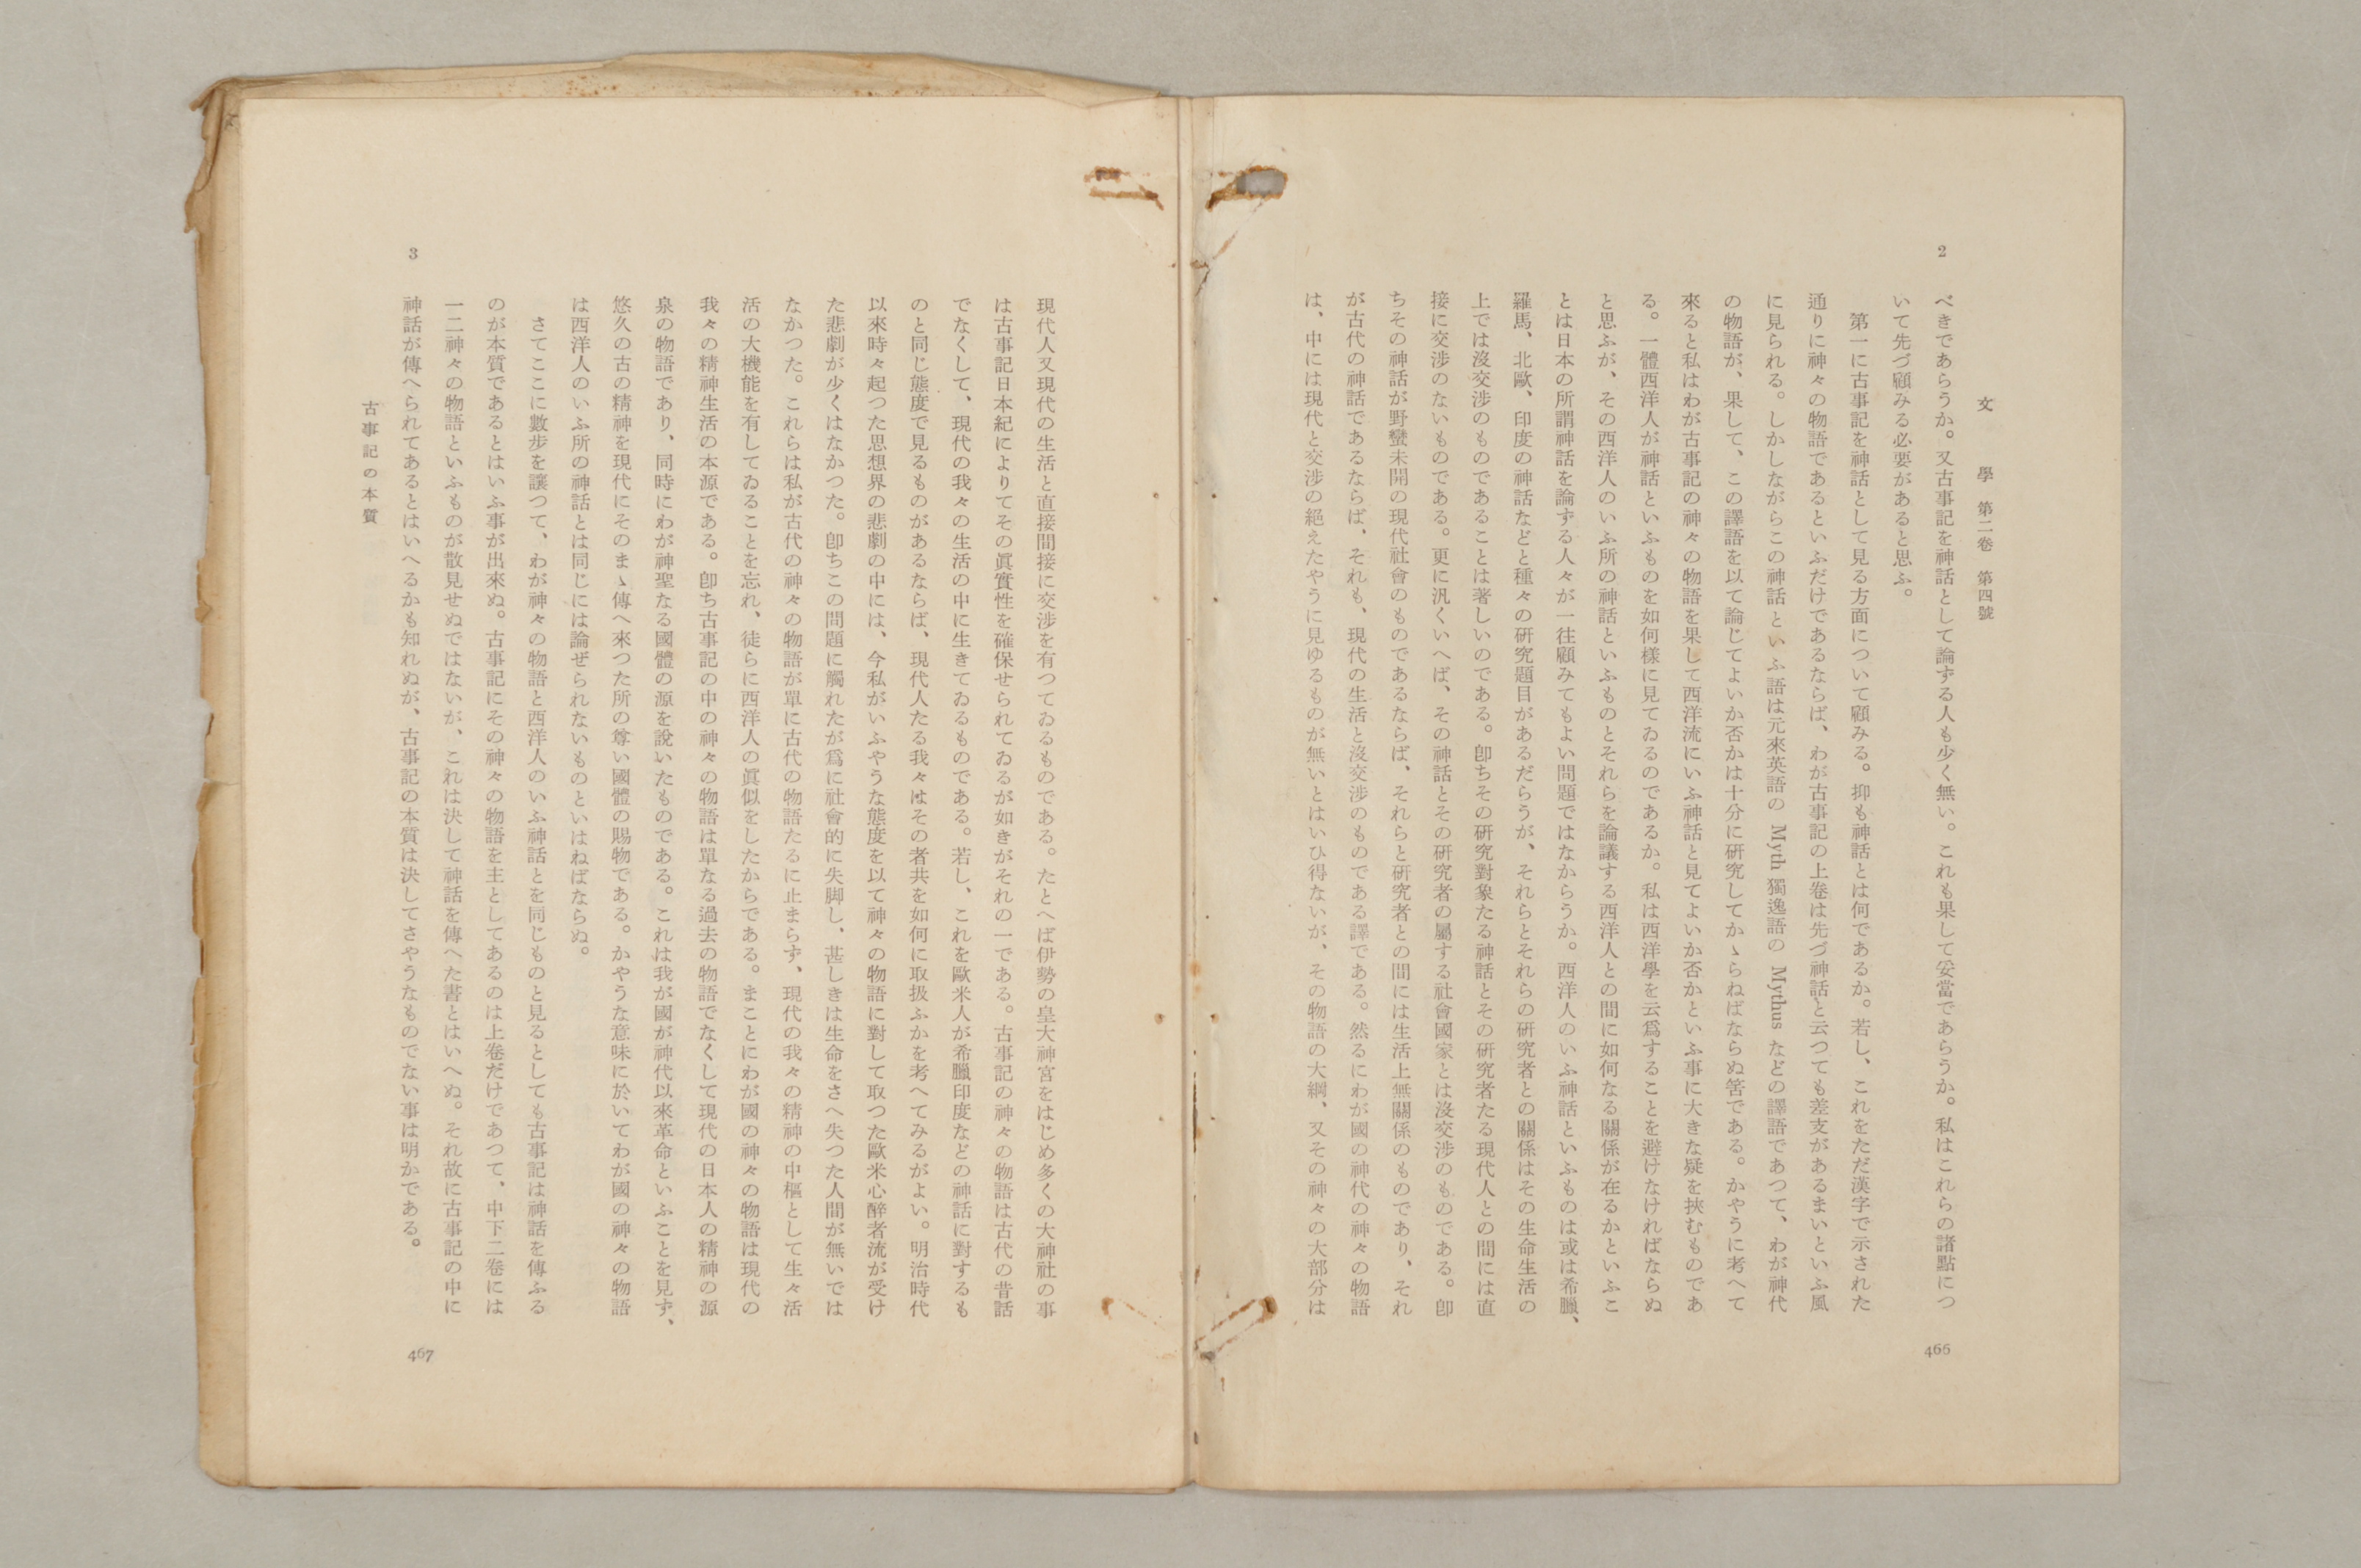 文學 第二卷 第四號
2
べきであらうか。又古事記を神話として論ずる人も少く無い。これも果して妥當であらうか。私はこれらの諸點につ
いて先づ顧みる必要があると思ふ。
第一に古事記を神話として見る方面について顧みる。抑も神話とは何であるか。若し、これをただ漢字で示された
通りに神々の物語であるといふだけであるならば、わが古事記の上卷は先づ神話と云つても差支があるまいといふ風
に見られる。しかしながらこの神話といふ語は元來英語の Myth 獨逸語の Mythus などの譯語であつて、わが神代
の物語が、果して、この譯語を以て論じてよいか否かは十分に研究してかゝらねばならぬ筈である。かやうに考へて
來ると私はわが古事記の神々の物語を果して西洋流にいふ神話と見てよいか否かといふ事に大きな疑を挾むものであ
る。一體西洋人が神話といふものを如何樣に見てゐるのであるか。私は西洋學を云爲することを避けなければならぬ
と思ふが、その西洋人のいふ所の神話といふものとそれらを論議する西洋人との間に如何なる關係が在るかといふこ
とは日本の所謂神話を論ずる人々が一往顧みてもよい問題ではなからうか。西洋人のいふ神話といふものは或は希臘、
羅馬、北歐、印度の神話などと種々の研究題目があるだらうが、それらとそれらの研究者との關係はその生命生活の
上では沒交渉のものであることは著しいのである。卽ちその研究對象たる神話とその研究者たる現代人との間には直
接に交渉のないものである。更に汎くいへば、その神話とその研究者の屬する社會國家とは沒交渉のものである。卽
ちその神話が野蠻未開の現代社會のものであるならば、それらと研究者との間には生活上無關係のものであり、それ
が古代の神話であるならば、それも、現代の生活と沒交渉のものである譯である。然るにわが國の神代の神々の物語
は、中には現代と交渉の絕えたやうに見ゆるものが無いとはいひ得ないが、その物語の大綱、又その神々の大部分は
466
現代人又現代の生活と直接間接に交渉を有つてゐるものである。たとへば伊勢の皇大神宮をはじめ多くの大神社の事
は古事記日本紀によりてその眞實性を確保せられてゐるが如きがそれの一である。古事記の神々の物語は古代の昔話
でなくして、現代の我々の生活の中に生きてゐるものである。若し、これを歐米人が希臘印度などの神話に對するも
のと同じ態度で見るものがあるならば、現代人たる我々はその者共を如何に取扱ふかを考へてみるがよい。明治時代
以來時々起つた思想界の悲劇の中には、今私がいふやうな態度を以て神々の物語に對して取つた歐米心醉者流が受け
た悲劇が少くはなかつた。卽ちこの問題に觸れたが爲に社會的に失脚し、甚しきは生命をさへ失つた人間が無いでは
なかつた。これらは私が古代の神々の物語が單に古代の物語たるに止まらず、現代の我々の精神の中樞として生々活
活の大機能を有してゐることを忘れ、徒らに西洋人の眞似をしたからである。まことにわが國の神々の物語は現代の
我々の精神生活の本源である。卽ち古事記の中の神々の物語は單なる過去の物語でなくして現代の日本人の精神の源
泉の物語であり、同時にわが神聖なる國體の源を說いたものである。これは我が國が神代以來革命といふことを見ず、
悠久の古の精神を現代にそのまゝ傳へ來つた所の尊い國體の賜物である。かやうな意味に於いてわが國の神々の物語
は西洋人のいふ所の神話とは同じには論ぜられないものといはねばならぬ。
さてここに數步を讓つて、わが神々の物語と西洋人のいふ神話とを同じものと見るとしても古事記は神話を傳ふる
のが本質であるとはいふ事が出來ぬ。古事記にその神々の物語を主としてあるのは上卷だけであつて、中下二卷には
一二神々の物語といふものが散見せぬではないが、これは決して神話を傳へた書とはいへぬ。それ故に古事記の中に
神話が傳へられてあるとはいへるかも知れぬが、古事記の本質は決してさやうなものでない事は明かである。
3
古事記の本質
467